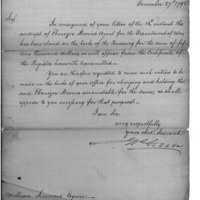 December 27th 1798
Sir
In consequence of your letter of the 12th instant the
receipt of Ebenezer Stevens Agent for the Department of War
has been closed on the books of the Treasury for the sum of fifty
one thousand dollars as will appear from the Certificate of
the Register herewith transmitted.
You are therefore requested to cause such entries to be
made in the books of your office for charging and holding the
said Ebenezer Stevens accountable for the same, as shall
appear to you necessary for that purpose.
I am Sir
very respectfully
Your obed. Servant
William Simmons Esquire